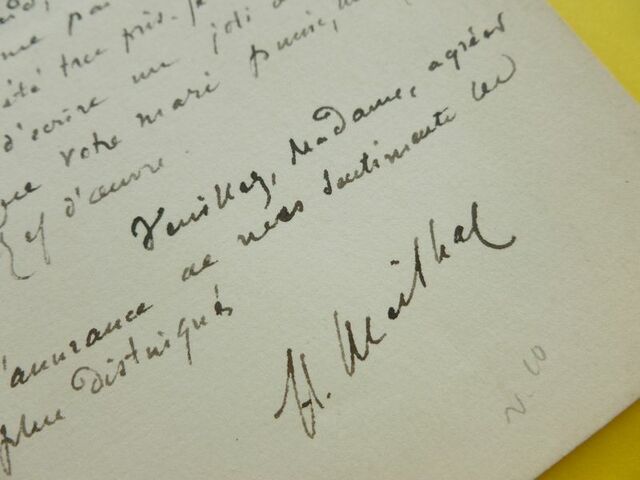 me par
été très pris. Je
d'écrire un joli
que votre mari puisse,
chef d'œuvre.
Veuillez, Madame, agréer
l'assurance de mes sentiments les
plus distingués
H. Meilhac